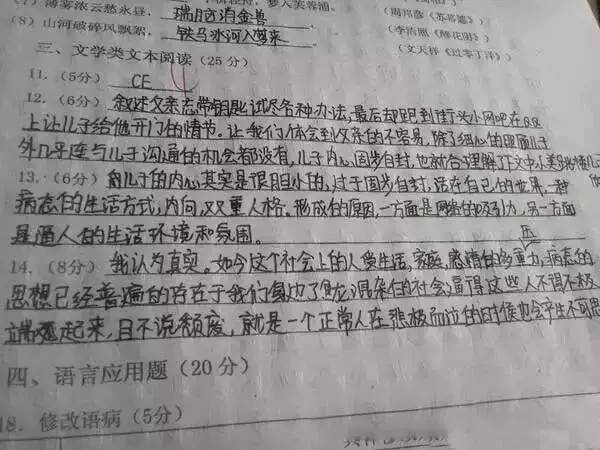 (7) 薄雾浓云愁永昼， 瑞脑消金兽 。
(8) 山河破碎风飘絮， 铁马冰河入梦来 。 (李清照《醉花阴》)
(文天祥《过零丁洋》)
三、文学类文本阅读 (25 分)
11. (5分) CE
12. (6分) 叙述父亲忘带钥匙试尽各种办法，最后却跑到街头小网吧在QQ
上让儿子给他开门的情节。让我们体会到父亲的不容易，除了细心的照顾儿子
外几乎连与儿子沟通的机会都没有，儿子内心固步自封，也就合乎理解了文中
13. (6分) 儿子的内心其实是很胆小的，过于固步自封，活在自己的世界，一种
病态的生活方式，内向，双重人格。形成的原因，一方面是网络的吸引力，另一方面
是逼人的生活环境和氛围。
14. (8分) 我认为真实。如今这个社会上的人受生活，家庭，感情的多重压力，病态的
思想已经普遍的存在于我们身边了，复杂的社会逼得这些人不得不极
端起来，且不说颓废，就是一个正常人在悲极而泣的时候也会产生不可思
四、语言应用题 (20 分)
18. 修改语病 (5分)